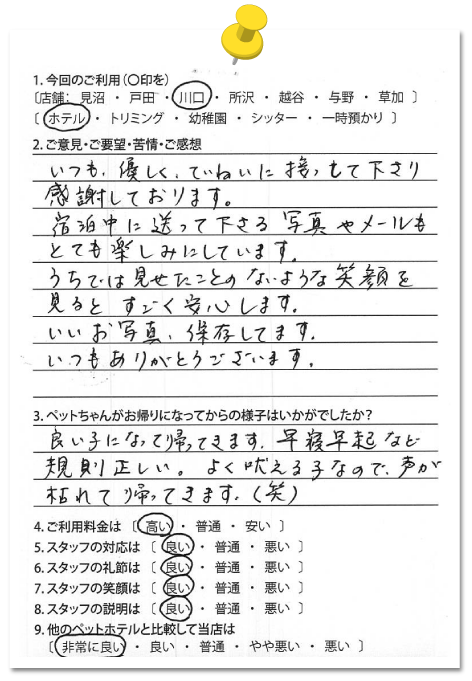 1. 今回のご利用(〇印を)
〔店舗: 見沼 ・ 戸田 ・ 川口 ・ 所沢 ・ 越谷 ・ 与野 ・ 草加 〕
〔 ホテル ・ トリミング ・ 幼稚園 ・ シッター ・ 一時預かり 〕
2. ご意見・ご要望・苦情・ご感想
いつも、優しく、ていねいに接っして下さり
感謝しております。
宿泊中に送って下さる写真やメールも
とても楽しみにしています。
うちでは見せたことのないような笑顔を
見るとすごく安心します。
いいお写真、保存してます。
いつもありがとうございます。
3. ペットちゃんがお帰りになってからの様子はいかがでしたか?
良い子になって帰ってきます。早寝早起など
規則正しい。よく吠える子なので、声が
枯れて帰ってきます。(笑)
4. ご利用料金は 〔 高い ・ 普通 ・ 安い 〕
5. スタッフの対応は 〔 良い ・ 普通 ・ 悪い 〕
6. スタッフの礼節は 〔 良い ・ 普通 ・ 悪い 〕
7. スタッフの笑顔は 〔 良い ・ 普通 ・ 悪い 〕
8. スタッフの説明は 〔 良い ・ 普通 ・ 悪い 〕
9. 他のペットホテルと比較して当店は
〔 非常に良い ・ 良い ・ 普通 ・ やや悪い ・ 悪い 〕